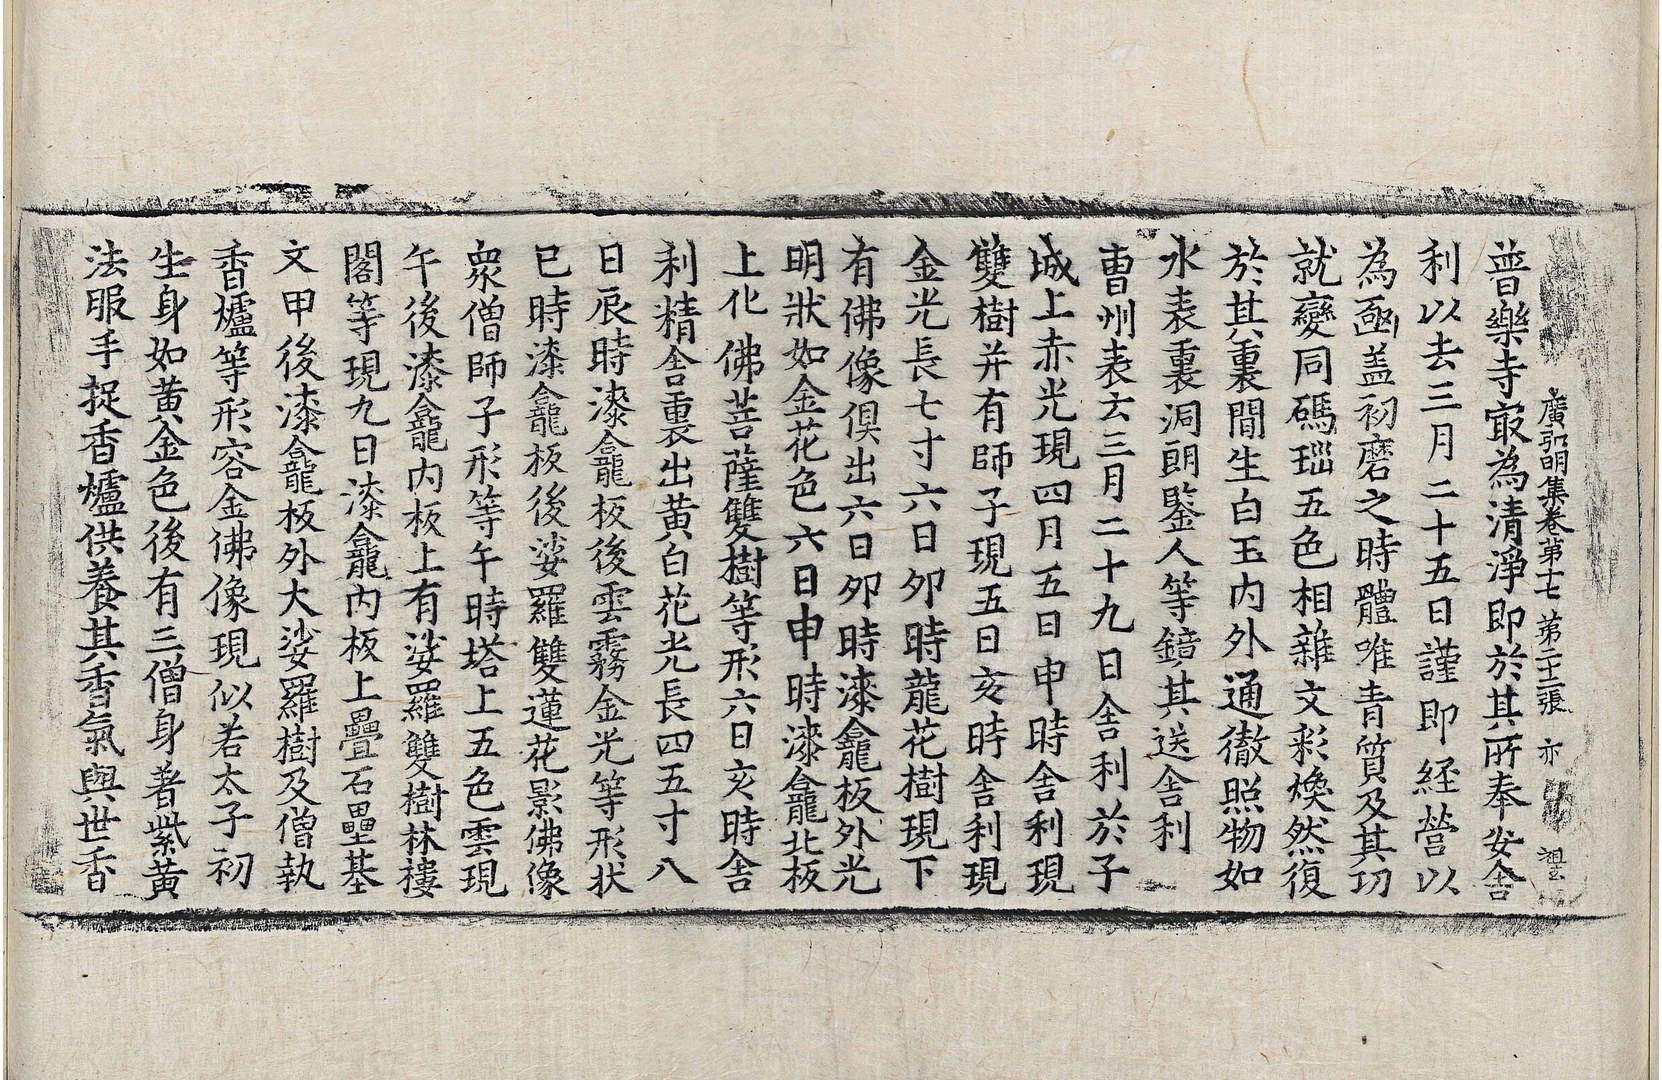 廣弘明集卷第十七 第二十二張 亦
普樂寺寂為清淨即於其所奉安舍
利以去三月二十五日謹即経營以
為函盖初磨之時體唯青質及其功
就變同碼瑙五色相雜文彩煥然復
於其裏間生白玉内外通徹照物如
水表裏洞朗鑒人等鏡其送舍利
曹州表云三月二十九日舍利於子
城上赤光現四月五日申時舍利現
雙樹并有師子現五日亥時舍利現
金光長七寸六日夘時龍花樹現下
有佛像俱出六日夘時漆龕板外光
明狀如金花色六日申時漆龕北板
上化佛菩薩雙樹等形六日亥時舍
利精舍裏出黃白花光長四五寸八
日辰時漆龕板後雲霧金光等形状
巳時漆龕板後娑羅雙蓮花影佛像
衆僧師子形等午時塔上五色雲現
午後漆龕内板上有娑羅雙樹林樓
閣等現九日漆龕内板上疊石壘基
文甲後漆龕板外大娑羅樹及僧執
香爐等形容金佛像現似若太子初
生身如黃金色後有三僧身著紫黃
法服手捉香爐供養其香氣與世香